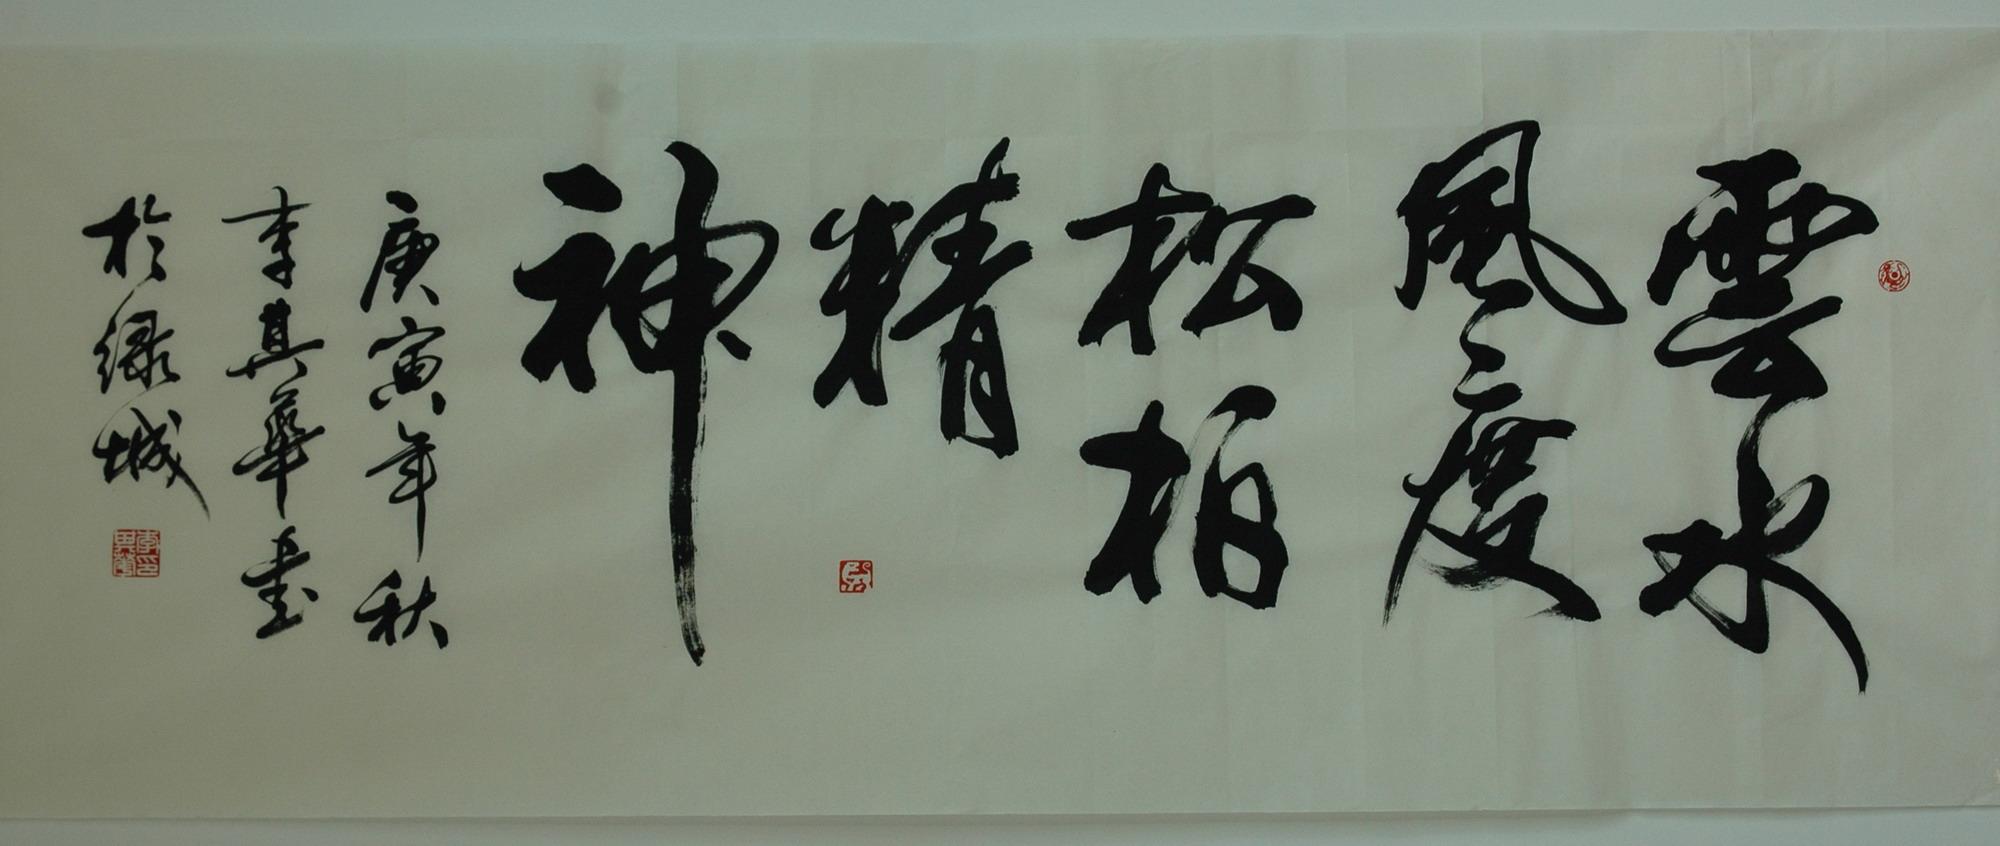 雲水
風度
松柏
精
神
庚寅年秋
李其華書
於绿城